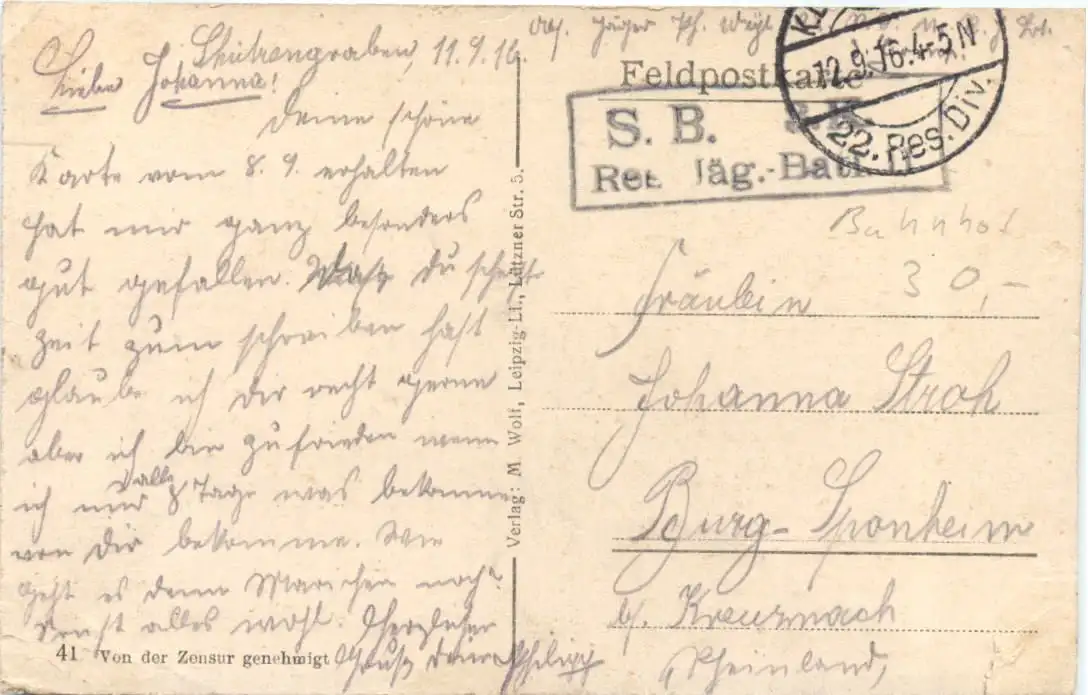 Schützengraben, 11.9.16.
Liebe Johanna!
Deine schöne
Karte vom 8. 9. erhalten
hat mir ganz besonders
gut gefallen. Das Du
zeit zum schreiben hast
glaube ich dir recht gerne
aber ich bin zufrieden wenn
ich nur alle 8 Tage was bekomme
von dir bekomme. Wie
geht es denn Mariechen noch?
Sonst alles wohl. Herzlicher
Gruß Dein Philipp
41 Von der Zensur genehmigt
Verlag: M. Wolf, Leipzig-Li., Lützner Str. 5.
Abs. Jäger Ph.
Feldpostkarte
12.9.16. 4-5 N
22. Res. Div.
S. B.
Res. Jäg.-Batl.
Bahnhof
30,-
Fräulein
Johanna Stroh
Burg-Sponheim
b/. Kreuznach
Rheinland,